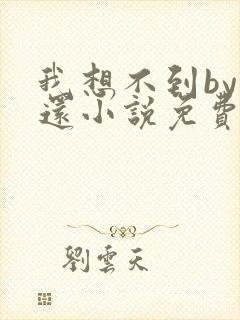 我想不到by
還小說免費
劉雲天